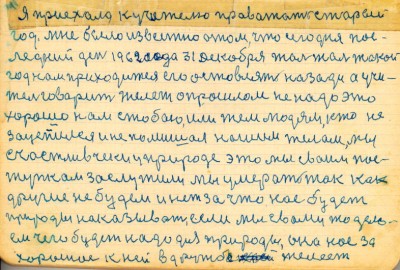 Я приехал к учителю провожать старый
год. мне было известно о том, что сегодня пос-
ледний день 1962 года 31 Декабря жал жал такой
год нам приходится его оставлять назади а учи-
тел говорит жалет о прошлом не надо это
хорошо нам с тобою, или тем людям, кто не
зацепился и не помишал нашим телам, мы
счастливчеки у природе это мы своим пос-
тупкам заслужили мы умерать так как
другие не будем и нет за что нас будет
природы наказывать, если мы своей под ею-
ем чего будет надо для природы, она нас за
хорошое к ней в друтое желеет